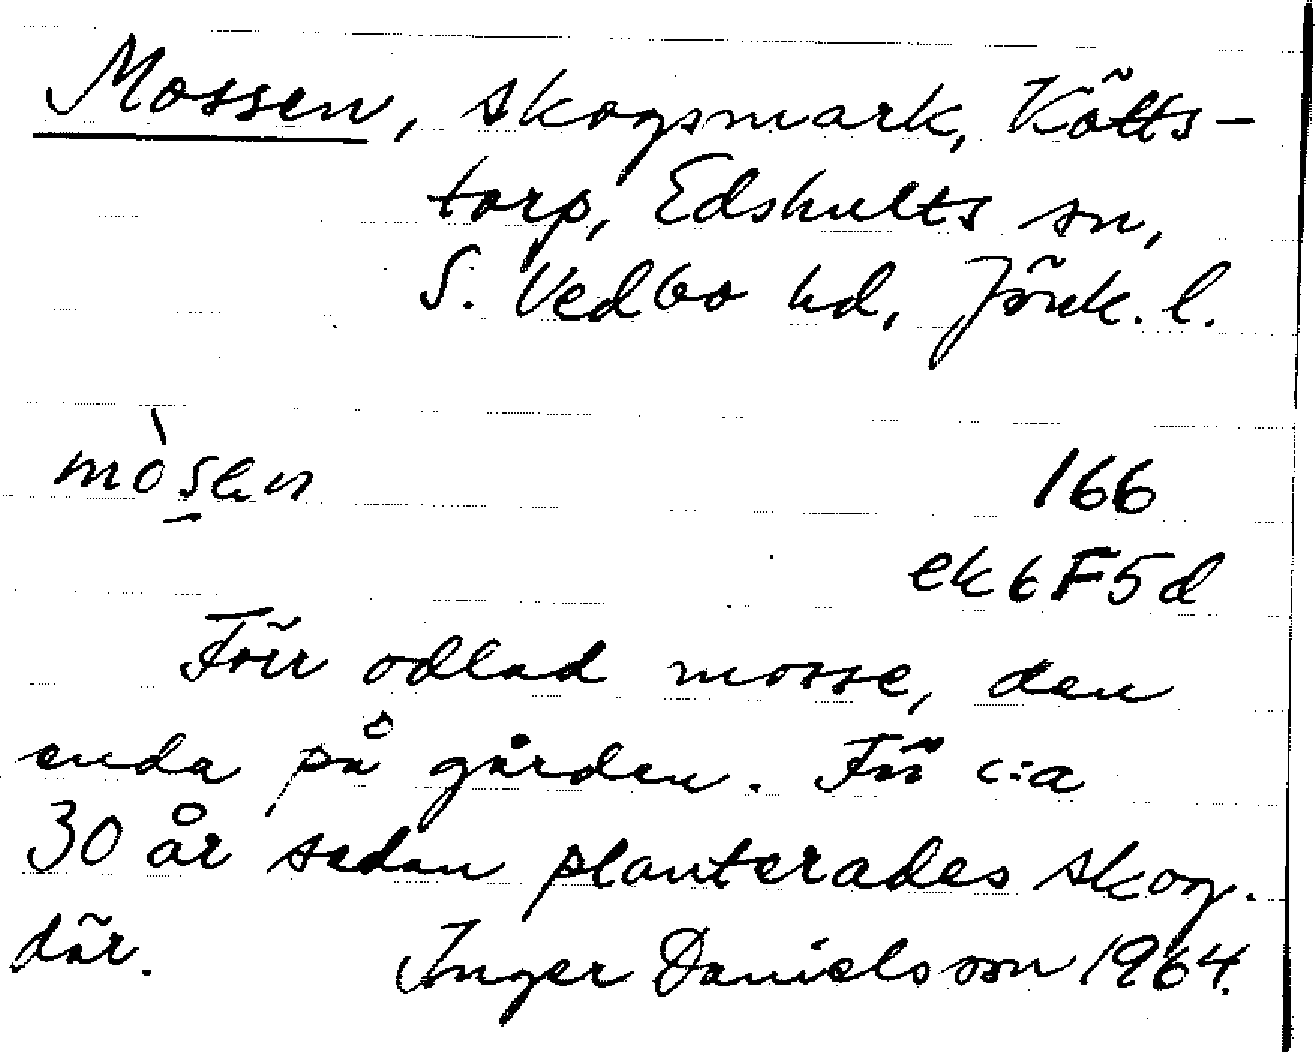 Mossen, skogsmark, Kätts-
torp, Edshults sn,
S. Vedbo hd, Jönk. l.
mòsen 166
ek 6F5d
Förr odlad mosse, den
enda på gården. För c:a
30 år sedan planterades skog.
där. Inger Danielsson 1964.